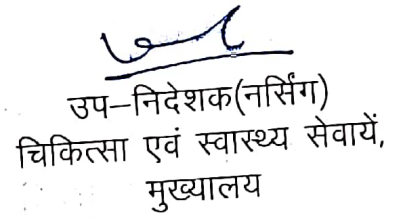 उप–निदेशक(नर्सिंग)
चिकित्सा एवं स्वास्थ्य सेवायें,
मुख्यालय